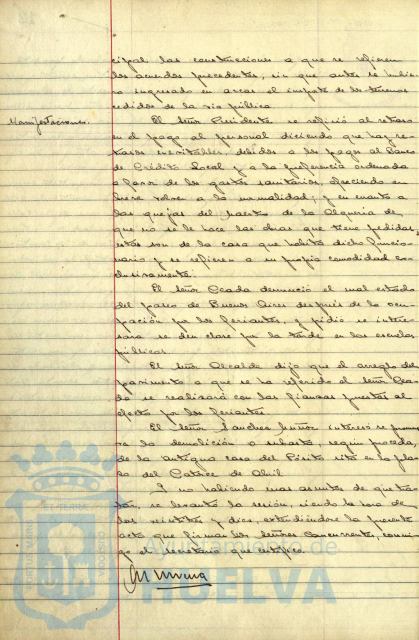 cipal las construcciones a que se refieren
los acuerdos precedentes, sin que antes se hubie-
ra ingresado en arcas el importe de los terrenos
cedidos de la vía pública.
Manifestaciones. El Señor Presidente se refirió al retraso
en el pago al personal diciendo que hay re-
trasos inevitables, debidos a los pagos al Banco
de Crédito Local y a la preferencia ordenada
a favor de los gastos sanitarios, ofreciendo en
breve volver a la normalidad; y en cuanto a
las quejas del maestro de la Alquería de
que no se le hace las obras que tiene pedidas,
estas son de la casa que habita dicho funcio-
nario y se refieren a su propia comodidad ex-
clusivamente.
El Señor Ceada denunció el mal estado
del paseo de Buenos Aires después de la ocu-
pación por los feriantes, y pidió se intere-
sara se den clase por la tarde en las escuelas
públicas.
El Señor Alcalde dijo que el arreglo del
pavimento a que se ha referido el Señor Cea-
da se realizará con las fianzas puestas al
efecto por los feriantes.
El Señor Sánchez Muñoz interesó se promue-
va la demolición o subasta según proceda,
de la antigua casa del Pósito sita en la pla-
za del Catorce de Abril.
Y no habiendo mas asuntos de que tra-
tar, se levantó la sesión, siendo la hora de
las veintitrés y diez, extendiéndose la presente
acta que firman los señores concurrentes, conmi-
go el secretario que certifico.
Ayuntamiento de
HUELVA